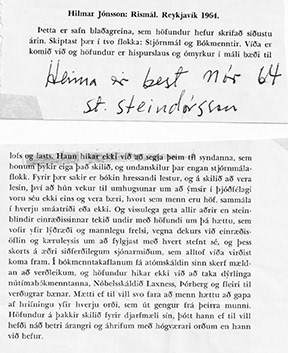 Hilmar Jónsson: Rismál. Reykjavík 1964.
Þetta er safn blaðagreina, sem höfundur hefur skrifað síðustu
árin. Skiptast þær í tvo flokka: Stjórnmál og Bókmenntir. Víða er
komið við og höfundur er hispurslaus og ómyrkur í máli bæði til
Heima er best nóv 64
St. Steindórsson
lofs og lasts. Hann hikar ekki við að segja þeim til syndanna, sem
honum þykir eiga það skilið, og undanskilur þar engan stjórnmála-
flokk. Fyrir þær sakir er bókin hressandi lestur, og á skilið að vera
lesin, því að hún vekur til umhugsunar um að ýmsir í þjóðfélagi
voru séu ekki eins og vera bæri, hvort sem menn eru höf. sammála
í hverju máatriði eða ekki. Og vissulega geta allir aðrir en stein-
blindir einræðissinnar tekið undir með höfundi um þá hættu, sem
vofir yfir lýðræði og mannlegu frelsi, vegna dekurs við einræðis-
öflin og kæruleysis um að fylgjast með hvert stefnt sé, og þess
skorts á æðri siðferðilegum sjónarmiðum, sem alltof víða virðist
koma fram. Í bókmenntakaflanum fá atómskáldin sinn skerf mæld-
an að verðleikum, og höfundur hikar ekki við að taka dýrlinga
nútímabókmenntanna, Nóbelsskáldið Laxness, Þórberg og fleiri til
verðugrar bænar. Mætti ef til vill svo fara að menn hættu að gapa
af hrifningu yfir hverju orði, sem út gengur frá þeirra munni.
Höfundur á þakkir skilið fyrir djarfmæli sín, þótt hann ef til vill
hefði náð betri árangri og áhrifum með hógværari orðum en hann
við hefur.